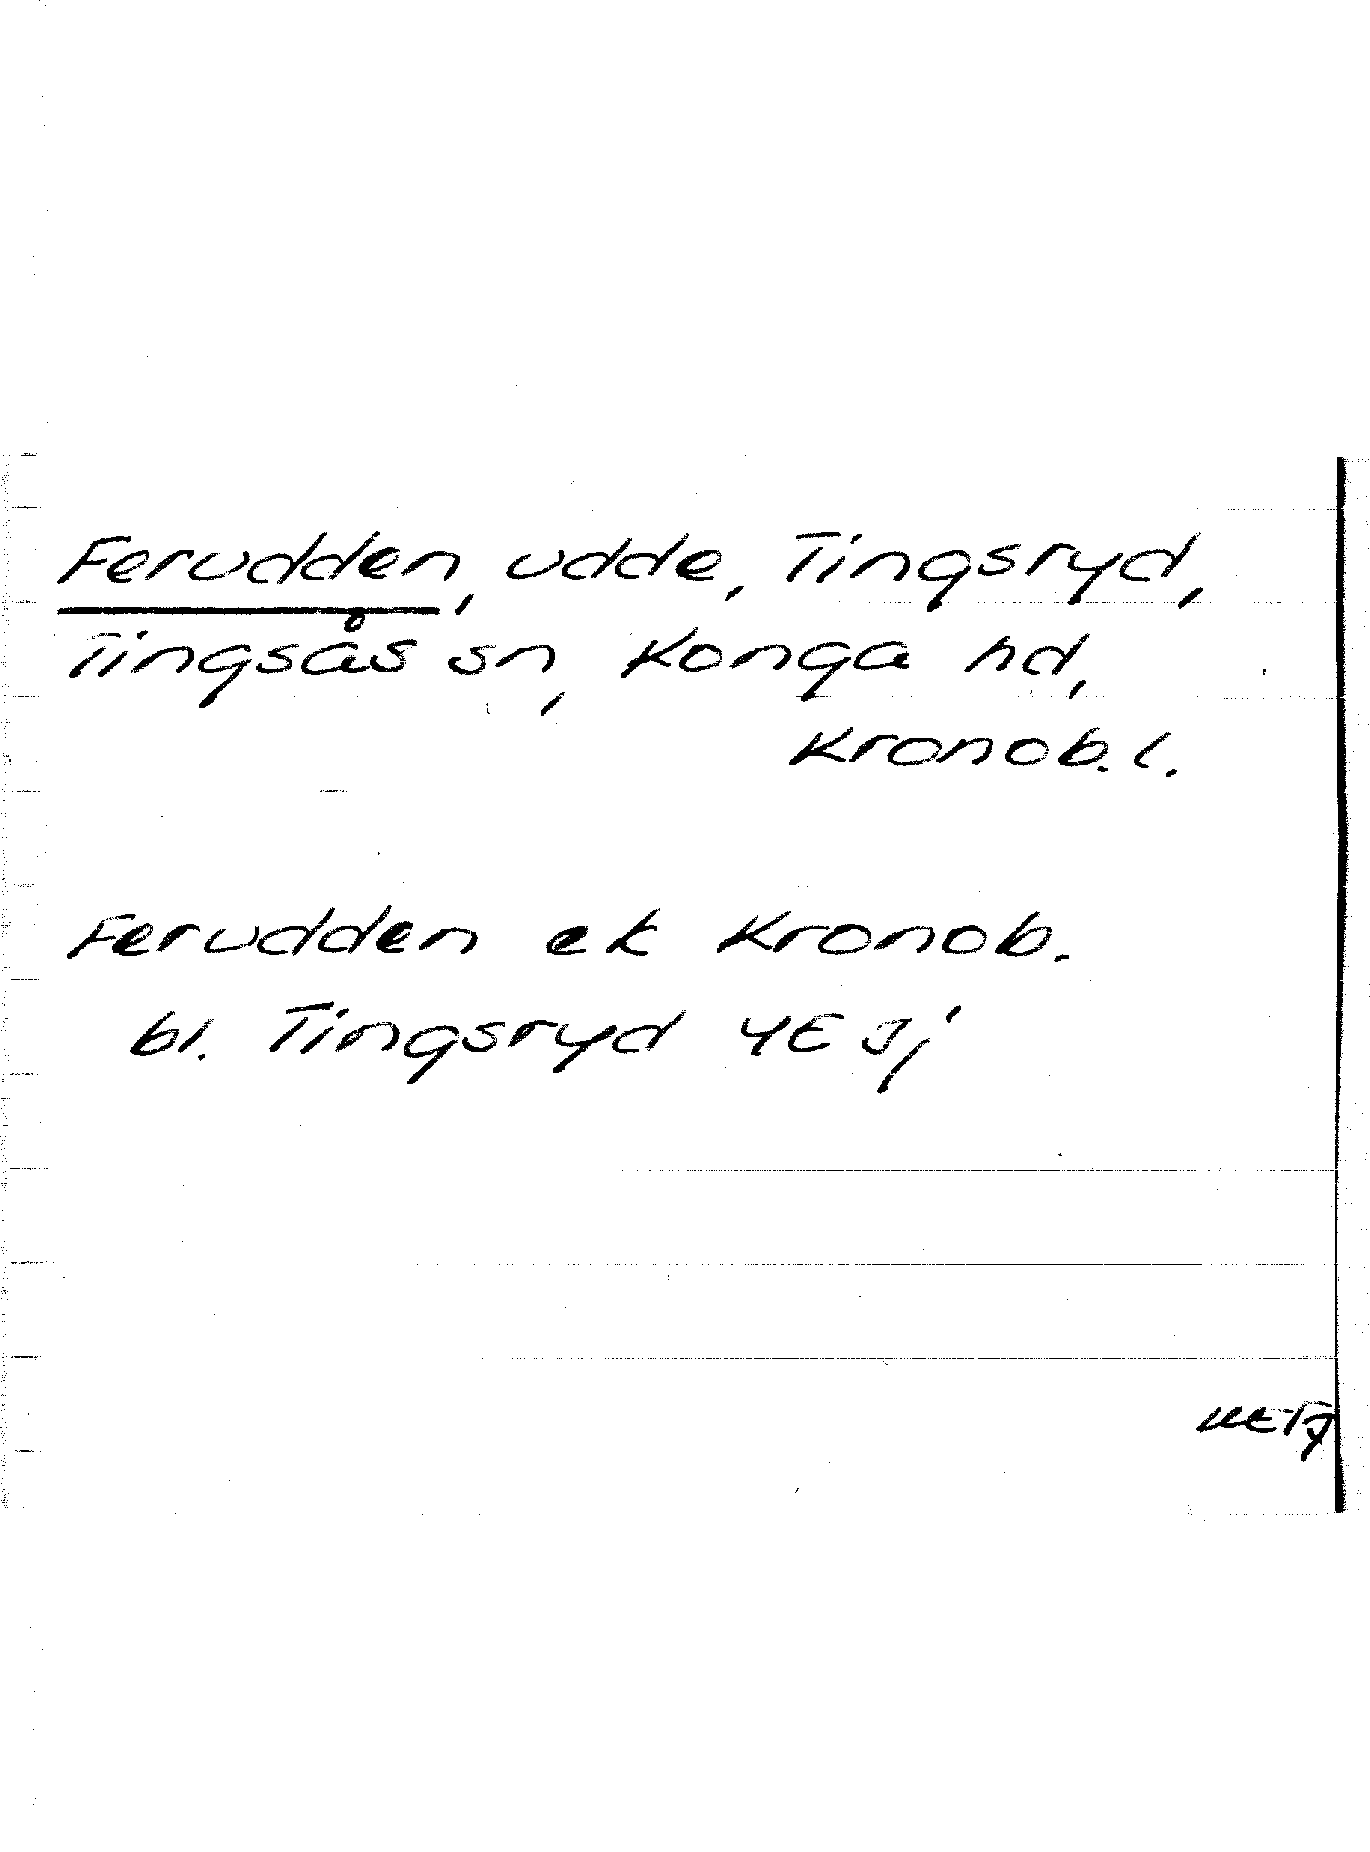 Ferudden, udde, Tingsryd,
Tingsås sn, Konga hd,
Kronob. l.
Ferudden ek Kronob.
bl. Tingsryd 4E Jj